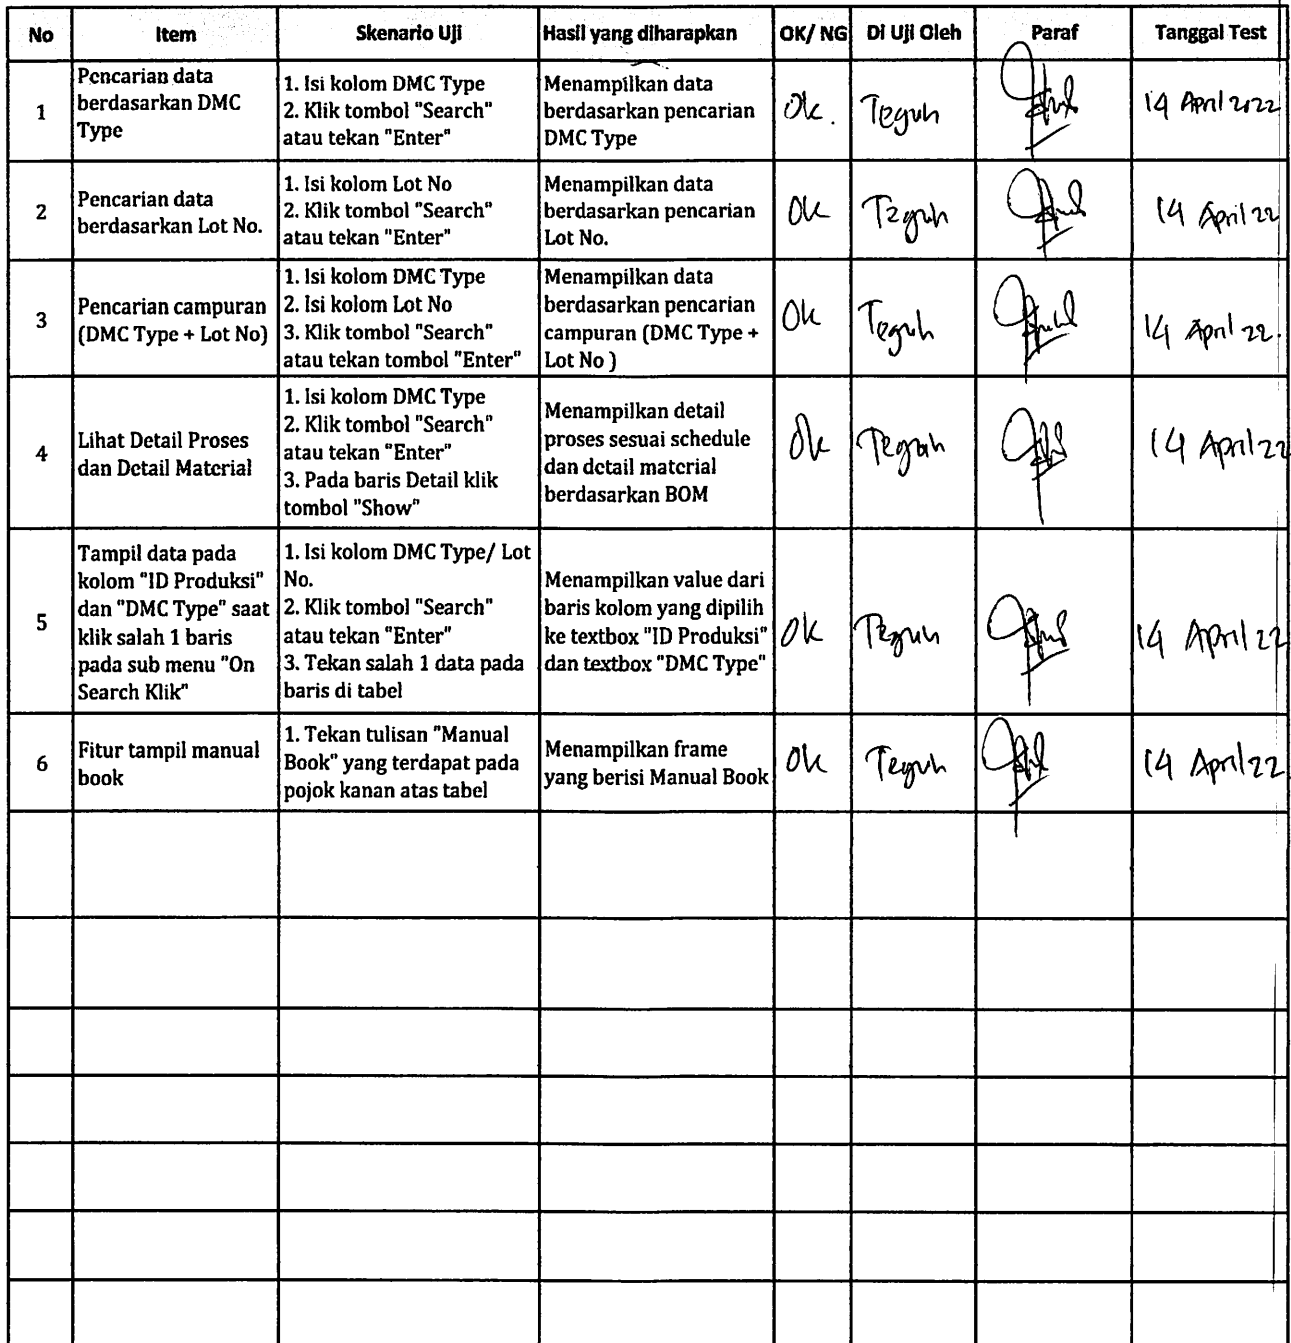 No Item Skenario Uji Hasil yang diharapkan OK/ NG Di Uji Oleh Paraf Tanggal Test
1
Pencarian data
berdasarkan DMC
Type
1. Isi kolom DMC Type
2. Klik tombol "Search"
atau tekan "Enter"
Menampilkan data
berdasarkan pencarian
DMC Type
Ok.
Teguh
14 April 2022
2
Pencarian data
berdasarkan Lot No.
1. Isi kolom Lot No
2. Klik tombol "Search"
atau tekan "Enter"
Menampilkan data
berdasarkan pencarian
Lot No.
Ok
Teguh
14 April 22
3
Pencarian campuran
(DMC Type + Lot No)
1. Isi kolom DMC Type
2. Isi kolom Lot No
3. Klik tombol "Search"
atau tekan tombol "Enter"
Menampilkan data
berdasarkan pencarian
campuran (DMC Type +
Lot No )
Ok
Teguh
14 April 22.
4
Lihat Detail Proses
dan Detail Material
1. Isi kolom DMC Type
2. Klik tombol "Search"
atau tekan "Enter"
3. Pada baris Detail klik
tombol "Show"
Menampilkan detail
proses sesuai schedule
dan detail material
berdasarkan BOM
Ok
Teguh
14 April 22
5
Tampil data pada
kolom "ID Produksi"
dan "DMC Type" saat
klik salah 1 baris
pada sub menu "On
Search Klik"
1. Isi kolom DMC Type/ Lot
No.
2. Klik tombol "Search"
atau tekan "Enter"
3. Tekan salah 1 data pada
baris di tabel
Menampilkan value dari
baris kolom yang dipilih
ke textbox "ID Produksi"
dan textbox "DMC Type"
OK
Teguh
14 April 22
6
Fitur tampil manual
book
1. Tekan tulisan "Manual
Book" yang terdapat pada
pojok kanan atas tabel
Menampilkan frame
yang berisi Manual Book
Ok
Teguh
14 April 22